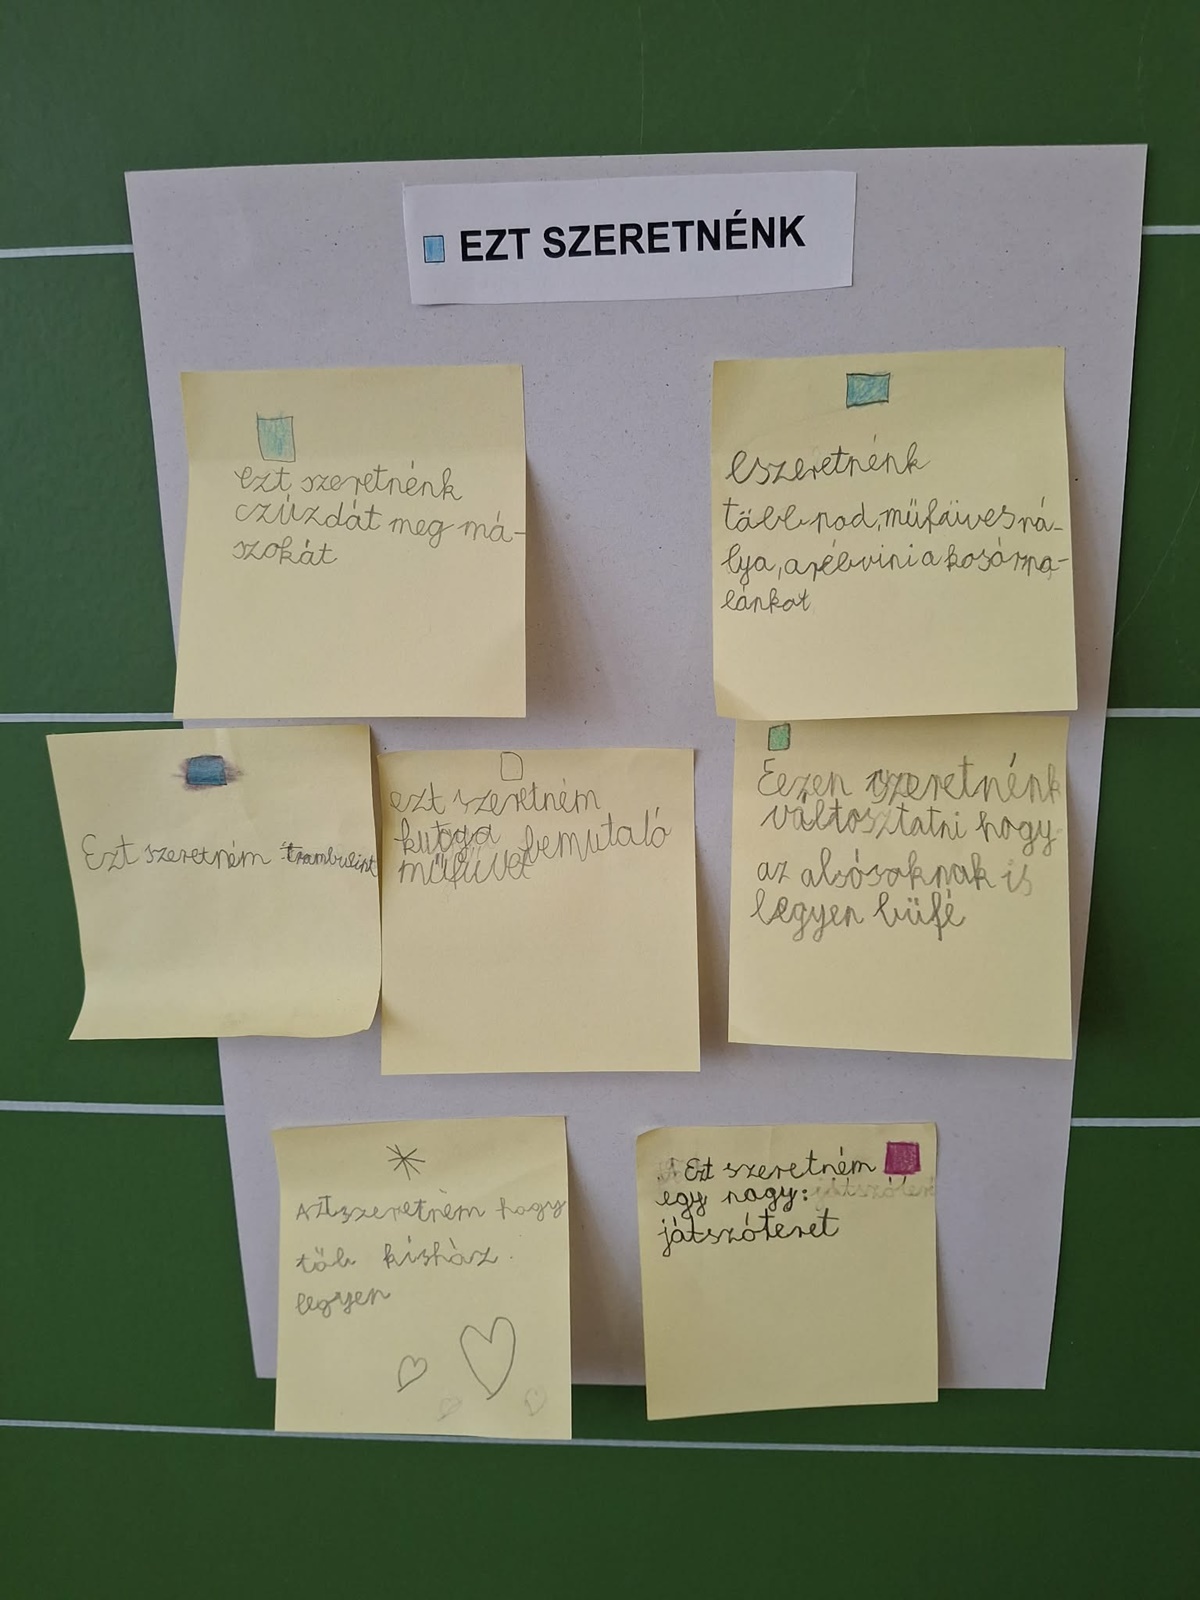 EZT SZERETNÉNK
ezt szeretnénk
czúzdát meg má-
szokát
eszeretnénk
több pad, műfüves pá-
lya, arébbvini a kosárpa-
lánkot
Ezt szeretném trambulint
ezt szeretném
kutya bemutaló
műfüvet
Eezen szeretnénk
változtatni hogy
az alsósoknak is
legyen büfé
Aztszeretném hogy
töb kisház
legyen
Ezt szeretném
egy nagy:
játszóteret